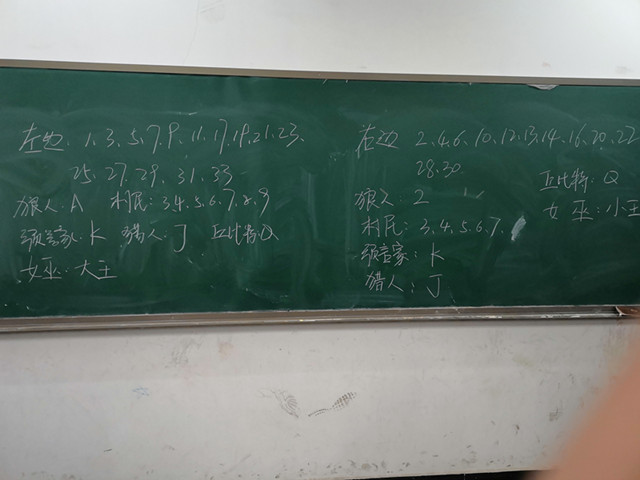 左边: 1、3、5、7、9、11、17、19、21、23、
25、27、29、31、33
狼人: A 村民: 3、4、5、6、7、8、9
预言家: K 猎人: J 丘比特: Q
女巫: 大王
右边 2、4、6、10、12、13、14、16、20、22
28、30
狼人: 2
村民: 3、4、5、6、7、
预言家: K
猎人: J
丘比特: Q
女巫: 小王